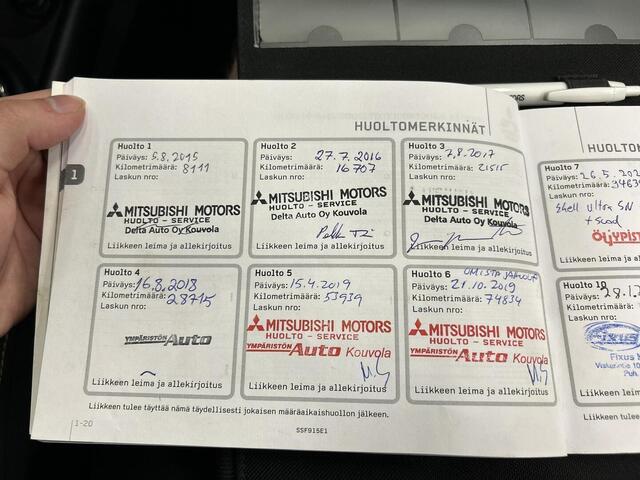 HUOLTOMERKINNÄT
1
Huolto 1
Päiväys: 5.8.2015
Kilometrimäärä: 8111
Laskun nro:
MITSUBISHI MOTORS
HUOLTO - SERVICE
Delta Auto Oy Kouvola
Liikkeen leima ja allekirjoitus
Huolto 2
Päiväys: 27.7.2016
Kilometrimäärä: 16707
Laskun nro:
MITSUBISHI MOTORS
HUOLTO - SERVICE
Delta Auto Oy Kouvola
Liikkeen leima ja allekirjoitus
Huolto 3
Päiväys: 7.8.2017
Kilometrimäärä: 21515
Laskun nro:
MITSUBISHI MOTORS
HUOLTO - SERVICE
Delta Auto Oy Kouvola
Liikkeen leima ja allekirjoitus
Huolto 4
Päiväys: 16.8.2018
Kilometrimäärä: 28715
Laskun nro:
YMPÄRISTÖN Auto
Liikkeen leima ja allekirjoitus
Huolto 5
Päiväys: 15.4.2019
Kilometrimäärä: 53939
Laskun nro:
MITSUBISHI MOTORS
HUOLTO - SERVICE
YMPÄRISTÖN Auto Kouvola
Liikkeen leima ja allekirjoitus
Huolto 6
Päiväys: 21.10.2019
Kilometrimäärä: 74834
Laskun nro:
MITSUBISHI MOTORS
HUOLTO - SERVICE
YMPÄRISTÖN Auto Kouvola
Liikkeen leima ja allekirjoitus
Liikkeen tulee täyttää nämä täydellisesti jokaisen määräaikaishuollon jälkeen.
1-20
SSF915E1
Huolto 7
Päiväys: 26.5.202
Kilometrimäärä: 3463
Laskun nro:
Shell Ultra 5N
ÖLJYPIST
Liikkeen leima ja
Huolto 10
Päiväys:
Kilometrimäärä:
Laskun nro:
FIXUS
Fixus
Liikkeen leima ja
Liikkeen tulee